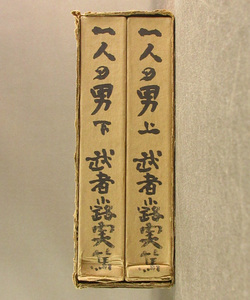 一人の男 上 武者小路実篤
一人の男 下 武者小路実篤